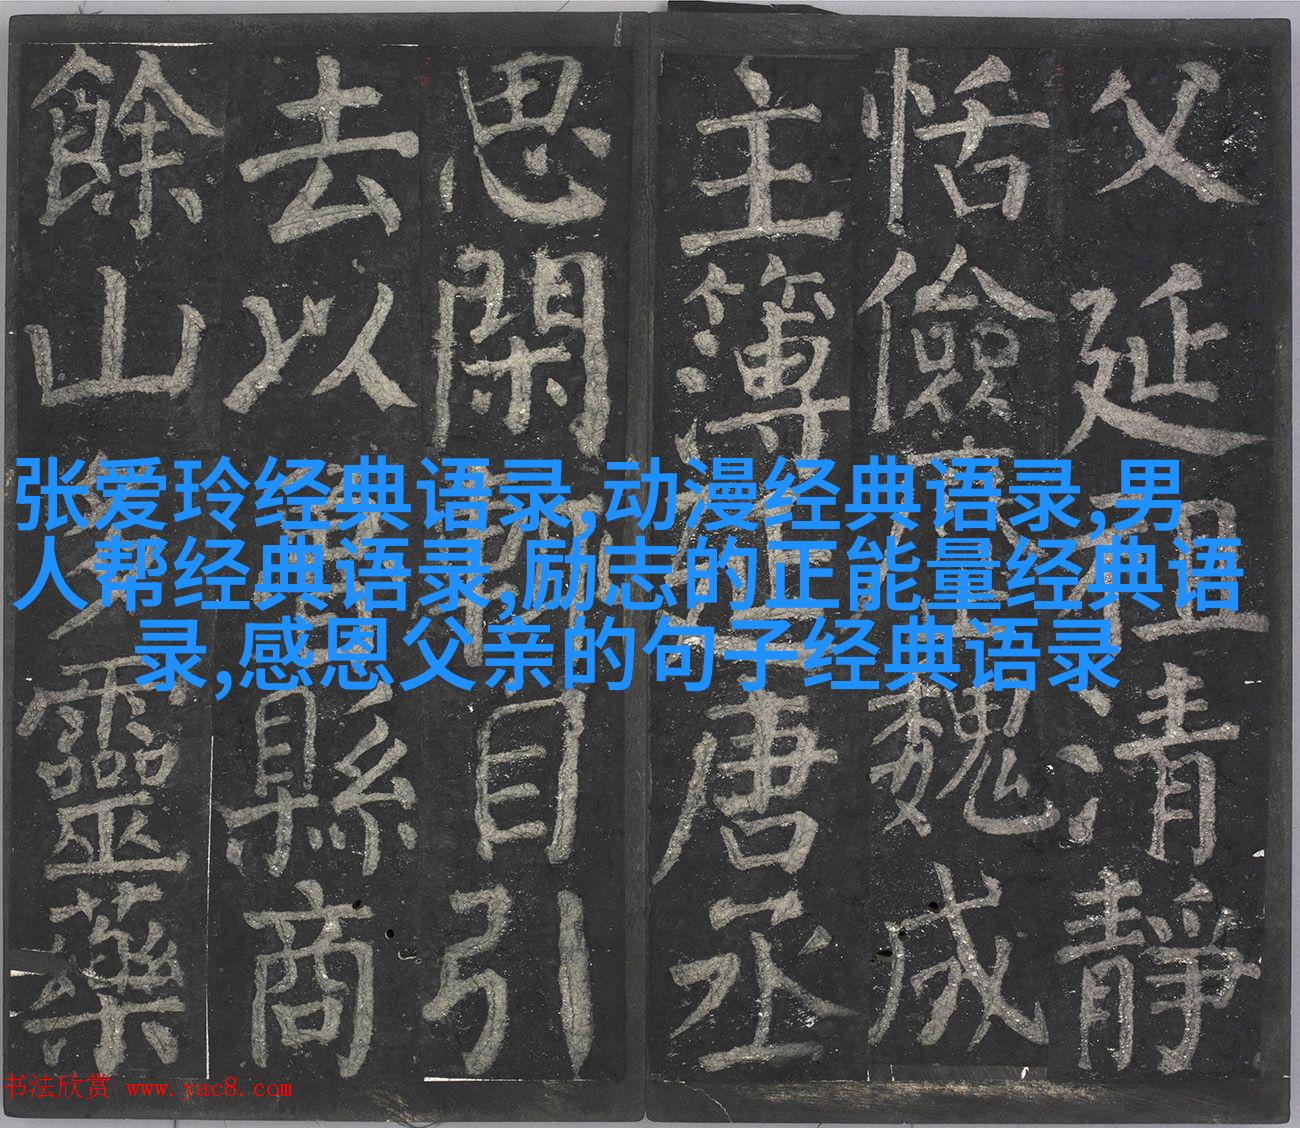 父延清靜
恬儉魏成
主簿唐丞
思閑目引
去以縣商
餘山靈藥
张爱玲经典语录,动漫经典语录,男
人帮经典语录,励志的正能量经典语
录,感恩父亲的句子经典语录
书法欣赏 www.yac8.com